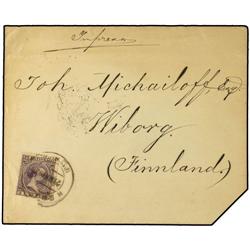 Impreso
Joh. Michailoff, Esq
Wiborg.
(Finnland.)